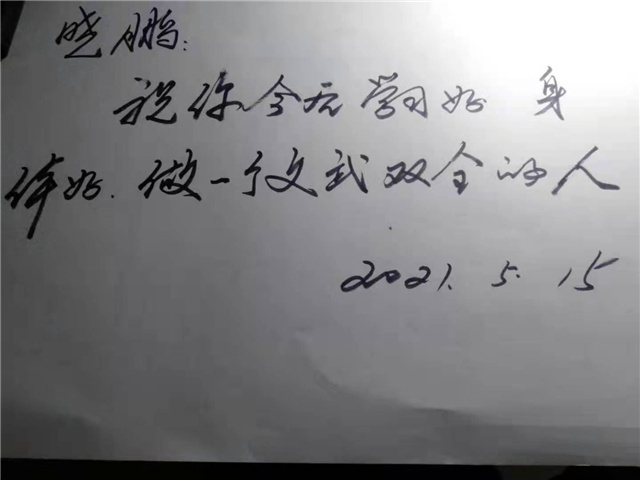 晓鹏:
祝你今后学习好 身
体好.做一个文武双全的人
2021.5.15